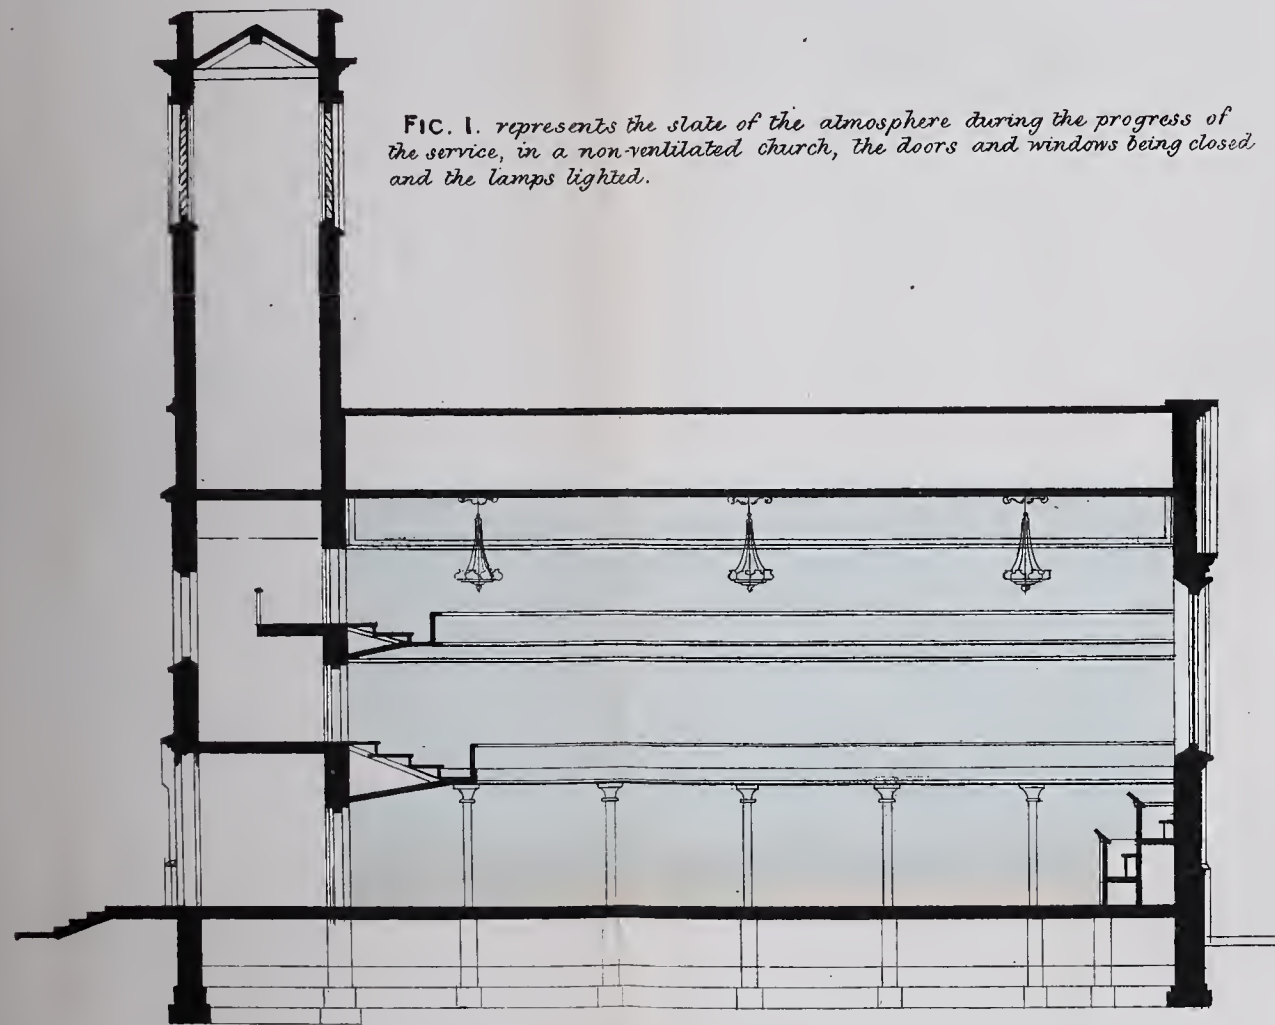 FIG. 1. represents the state of the atmosphere during the progress of
the service, in a non-ventilated church, the doors and windows being closed
and the lamps lighted.